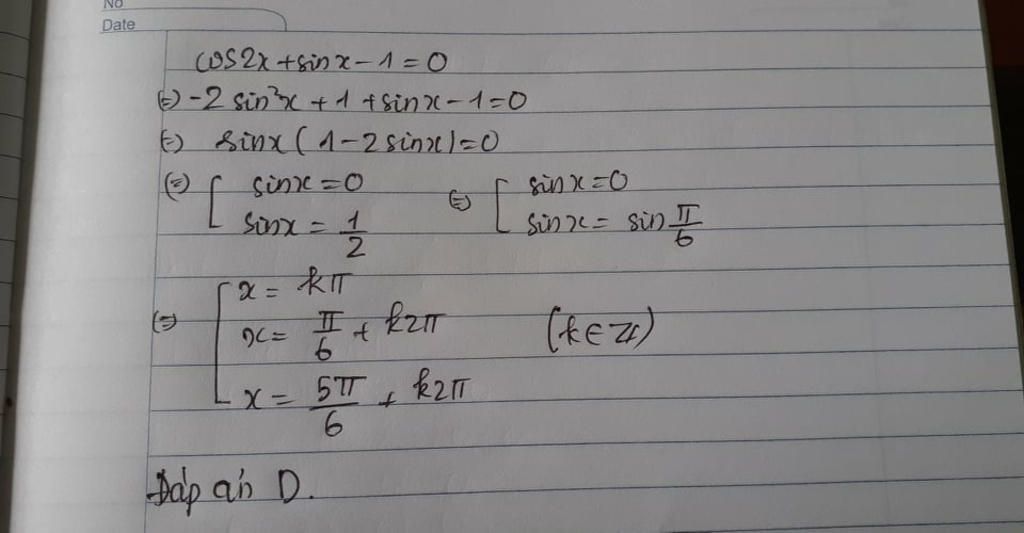 No
Date
cos2x + sinx - 1 = 0
(=) -2 sin²x + 1 + sinx - 1 = 0
(=) sinx ( 1 - 2 sinx ) = 0
(=) [ sinx = 0 (=) [ sinx = 0
sinx = 1/2 sinx = sin π/6
(=) [ x = kπ
x = π/6 + k2π (k ∈ Z)
x = 5π/6 + k2π
Đáp án D.